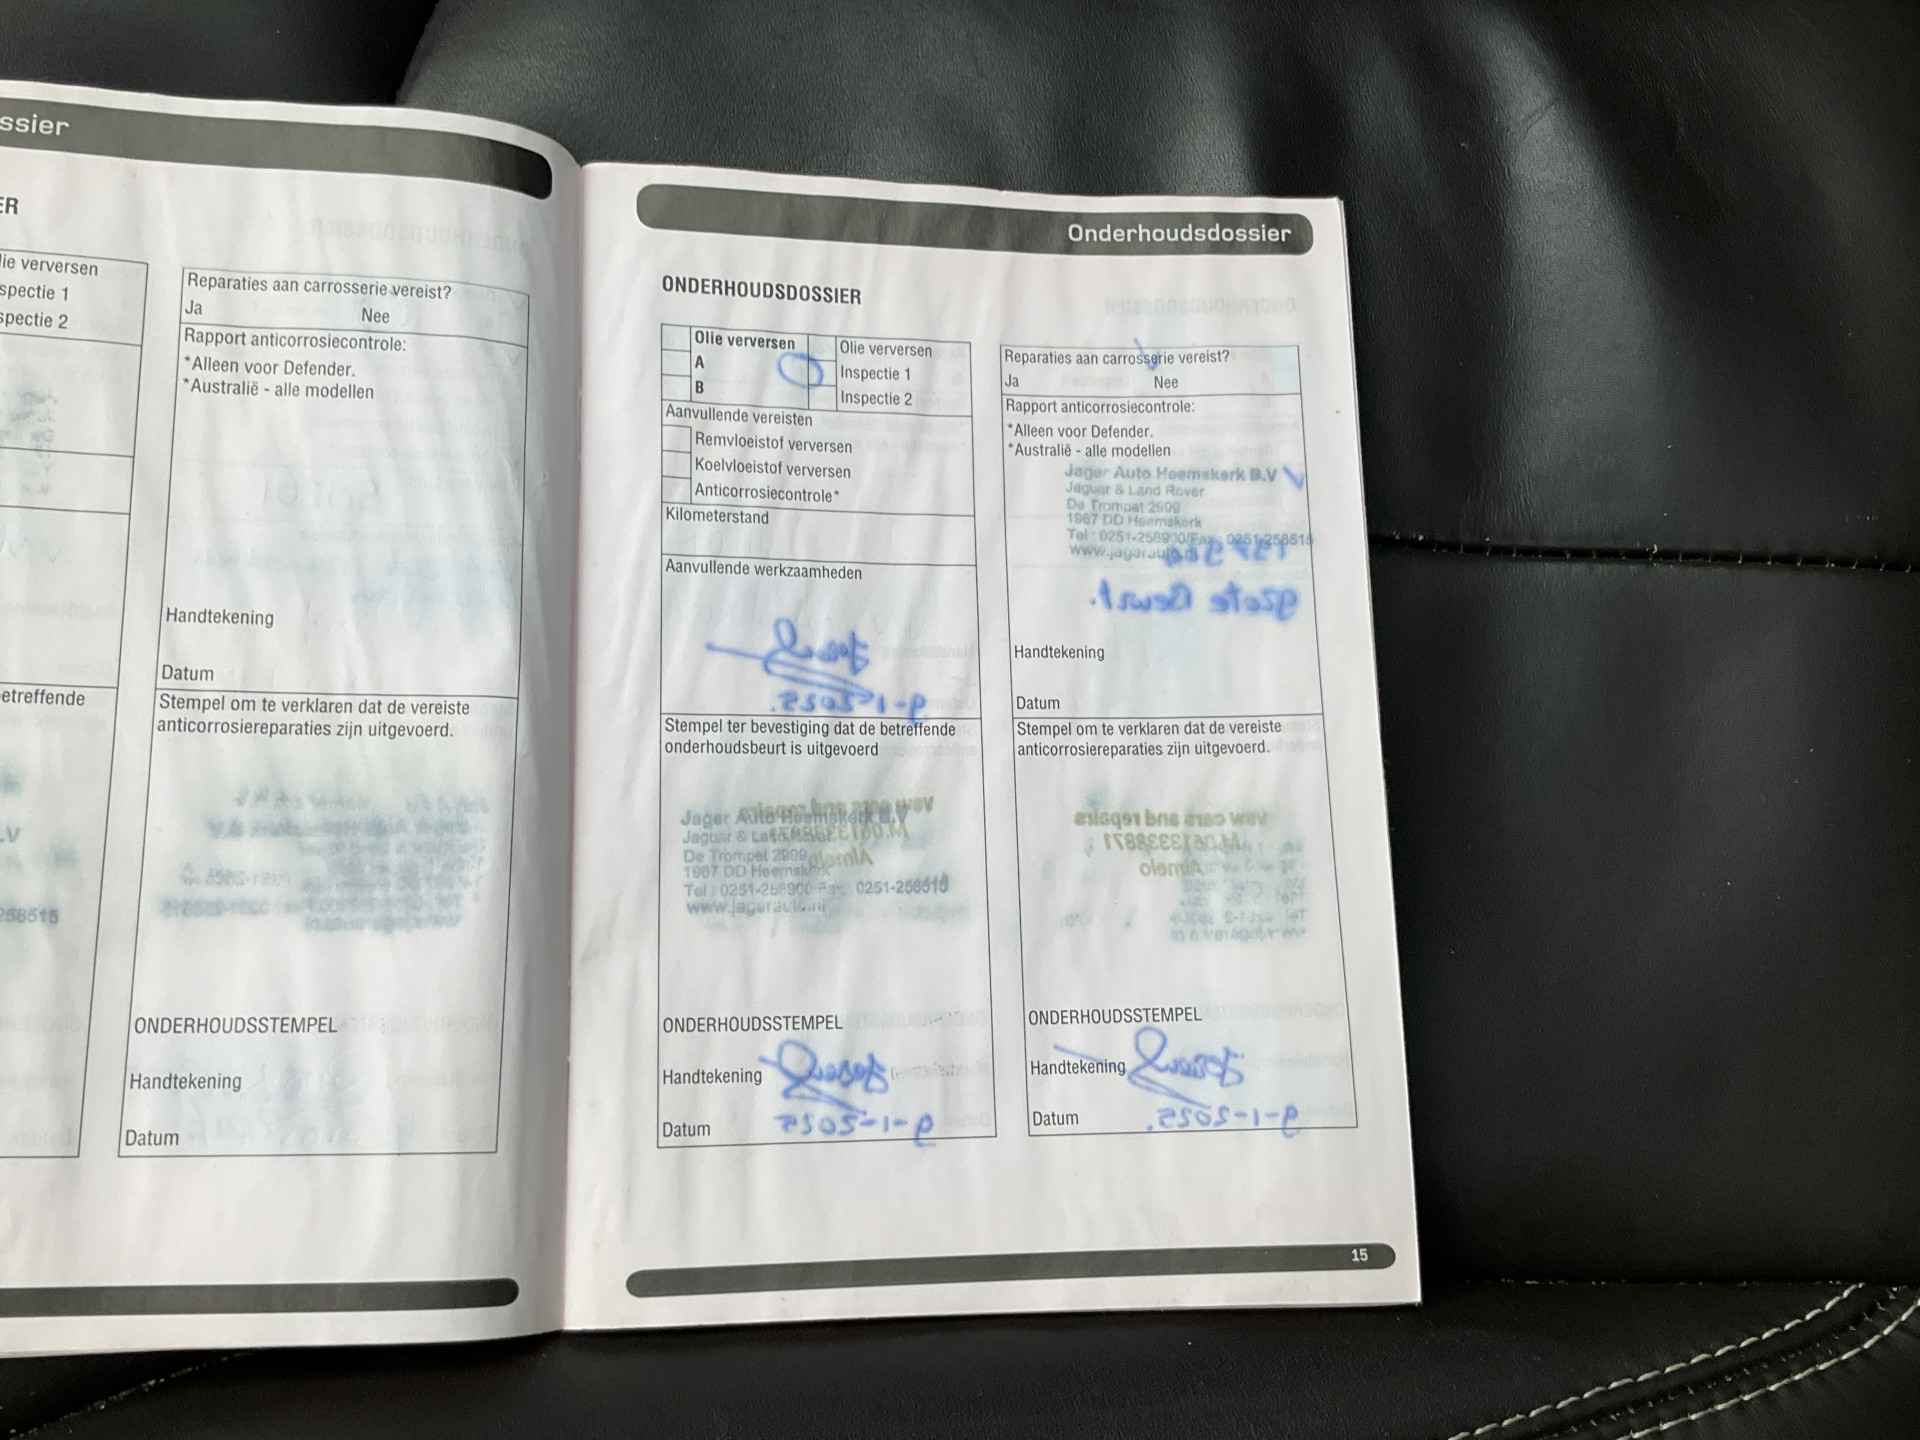 ssier
ER
lie verversen
spectie 1
spectie 2
etreffende
.V
258515
Reparaties aan carrosserie vereist?
Ja Nee
Rapport anticorrosiecontrole:
*Alleen voor Defender.
*Australië - alle modellen
Handtekening
Datum
Stempel om te verklaren dat de vereiste
anticorrosiereparaties zijn uitgevoerd.
ONDERHOUDSSTEMPEL
Handtekening
Datum
Onderhoudsdossier
ONDERHOUDSDOSSIER
Olie verversen
A
B
Olie verversen
Inspectie 1
Inspectie 2
Aanvullende vereisten
Remvloeistof verversen
Koelvloeistof verversen
Anticorrosiecontrole*
Kilometerstand
Aanvullende werkzaamheden
9-1-2025.
Stempel ter bevestiging dat de betreffende
onderhoudsbeurt is uitgevoerd
Jager Auto Heemskerk B.V
Jaguar & Land Rover
De Trompet 2999
1967 DD Heemskerk
Tel : 0251-258900 Fax. 0251-258515
www.jagerauto.nl
ONDERHOUDSSTEMPEL
Handtekening
Datum 9-1-2025
Reparaties aan carrosserie vereist?
Ja Nee
Rapport anticorrosiecontrole:
*Alleen voor Defender.
*Australië - alle modellen
Jager Auto Heemskerk B.V
Jaguar & Land Rover
De Trompet 2999
1967 DD Heemskerk
Tel : 0251-258900/Fax. 0251-258515
www.jagerauto.nl
grote Beurt.
Handtekening
Datum
Stempel om te verklaren dat de vereiste
anticorrosiereparaties zijn uitgevoerd.
vsw cars and repairs
M.0613338871
Almelo
ONDERHOUDSSTEMPEL
Handtekening
Datum 9-1-2025.
15